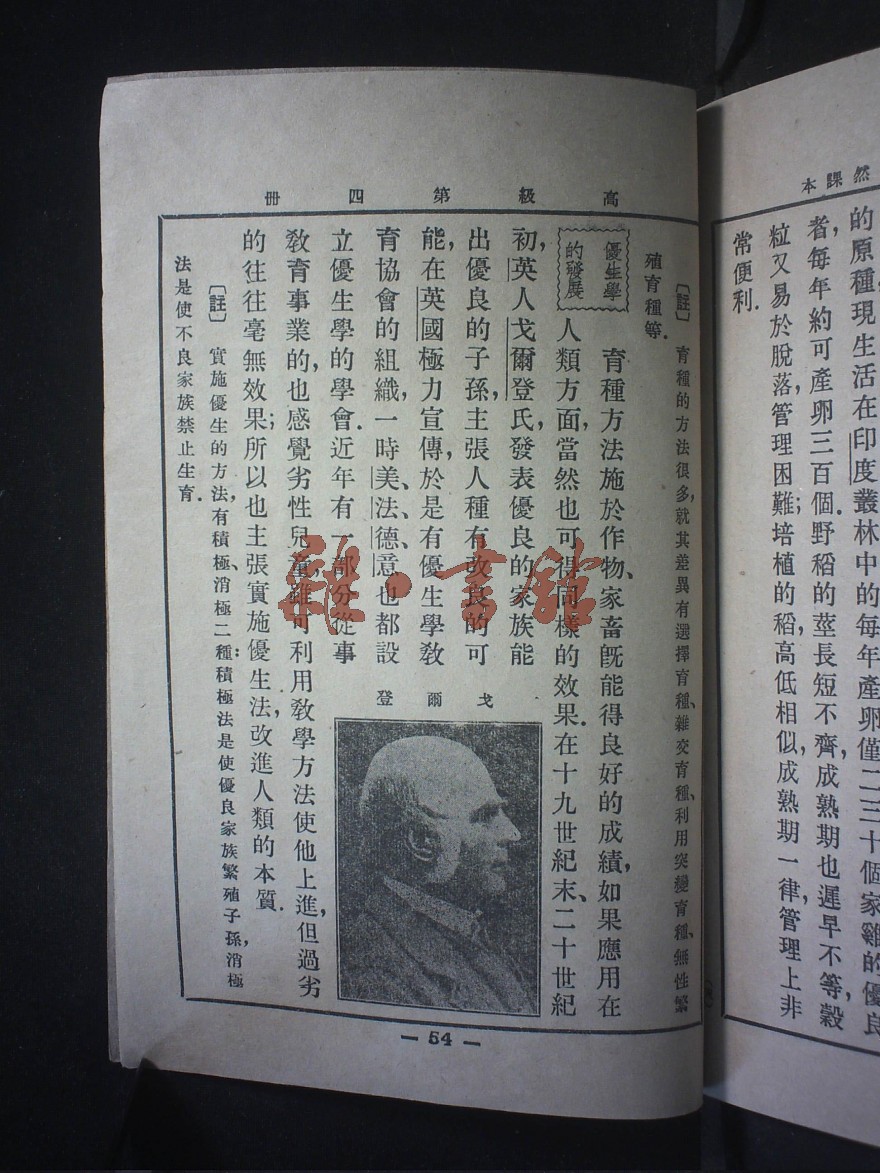 然課本
的原種，現生活在印度叢林中的每年產卵僅二三十個，家雞的優良
者，每年約可產卵三百個．野稻的莖長短不齊，成熟期也遲早不等，穀
粒又易於脫落，管理困難；培植的稻高低相似，成熟期一律管理上非
常便利．
高級第四冊
〔註〕　育種的方法很多，就其差異有選擇育種、雜交育種、利用突變育種、無性繁
殖育種等．
優生學
的發展
育種方法施於作物、家畜旣能得良好的成績，如果應用在
人類方面，當然也可得同樣的效果．在十九世紀末、二十世紀
初，英人戈爾登氏，發表優良的家族能
出優良的子孫，主張人種有改良的可
能，在英國極力宣傳，於是有優生學敎
育協會的組織，一時美、法、德、意也都設
立優生學的學會．近年有一部分從事
敎育事業的，也感覺劣性兒童，雖可利用敎學方法使他上進，但過劣
的往往毫無效果；所以也主張實施優生法，改進人類的本質．
〔註〕　實施優生的方法，有積極、消極二種：積極法是使優良家族繁殖子孫，消極
法是使不良家族禁止生育．
戈爾登
— 54 —
雜·書館